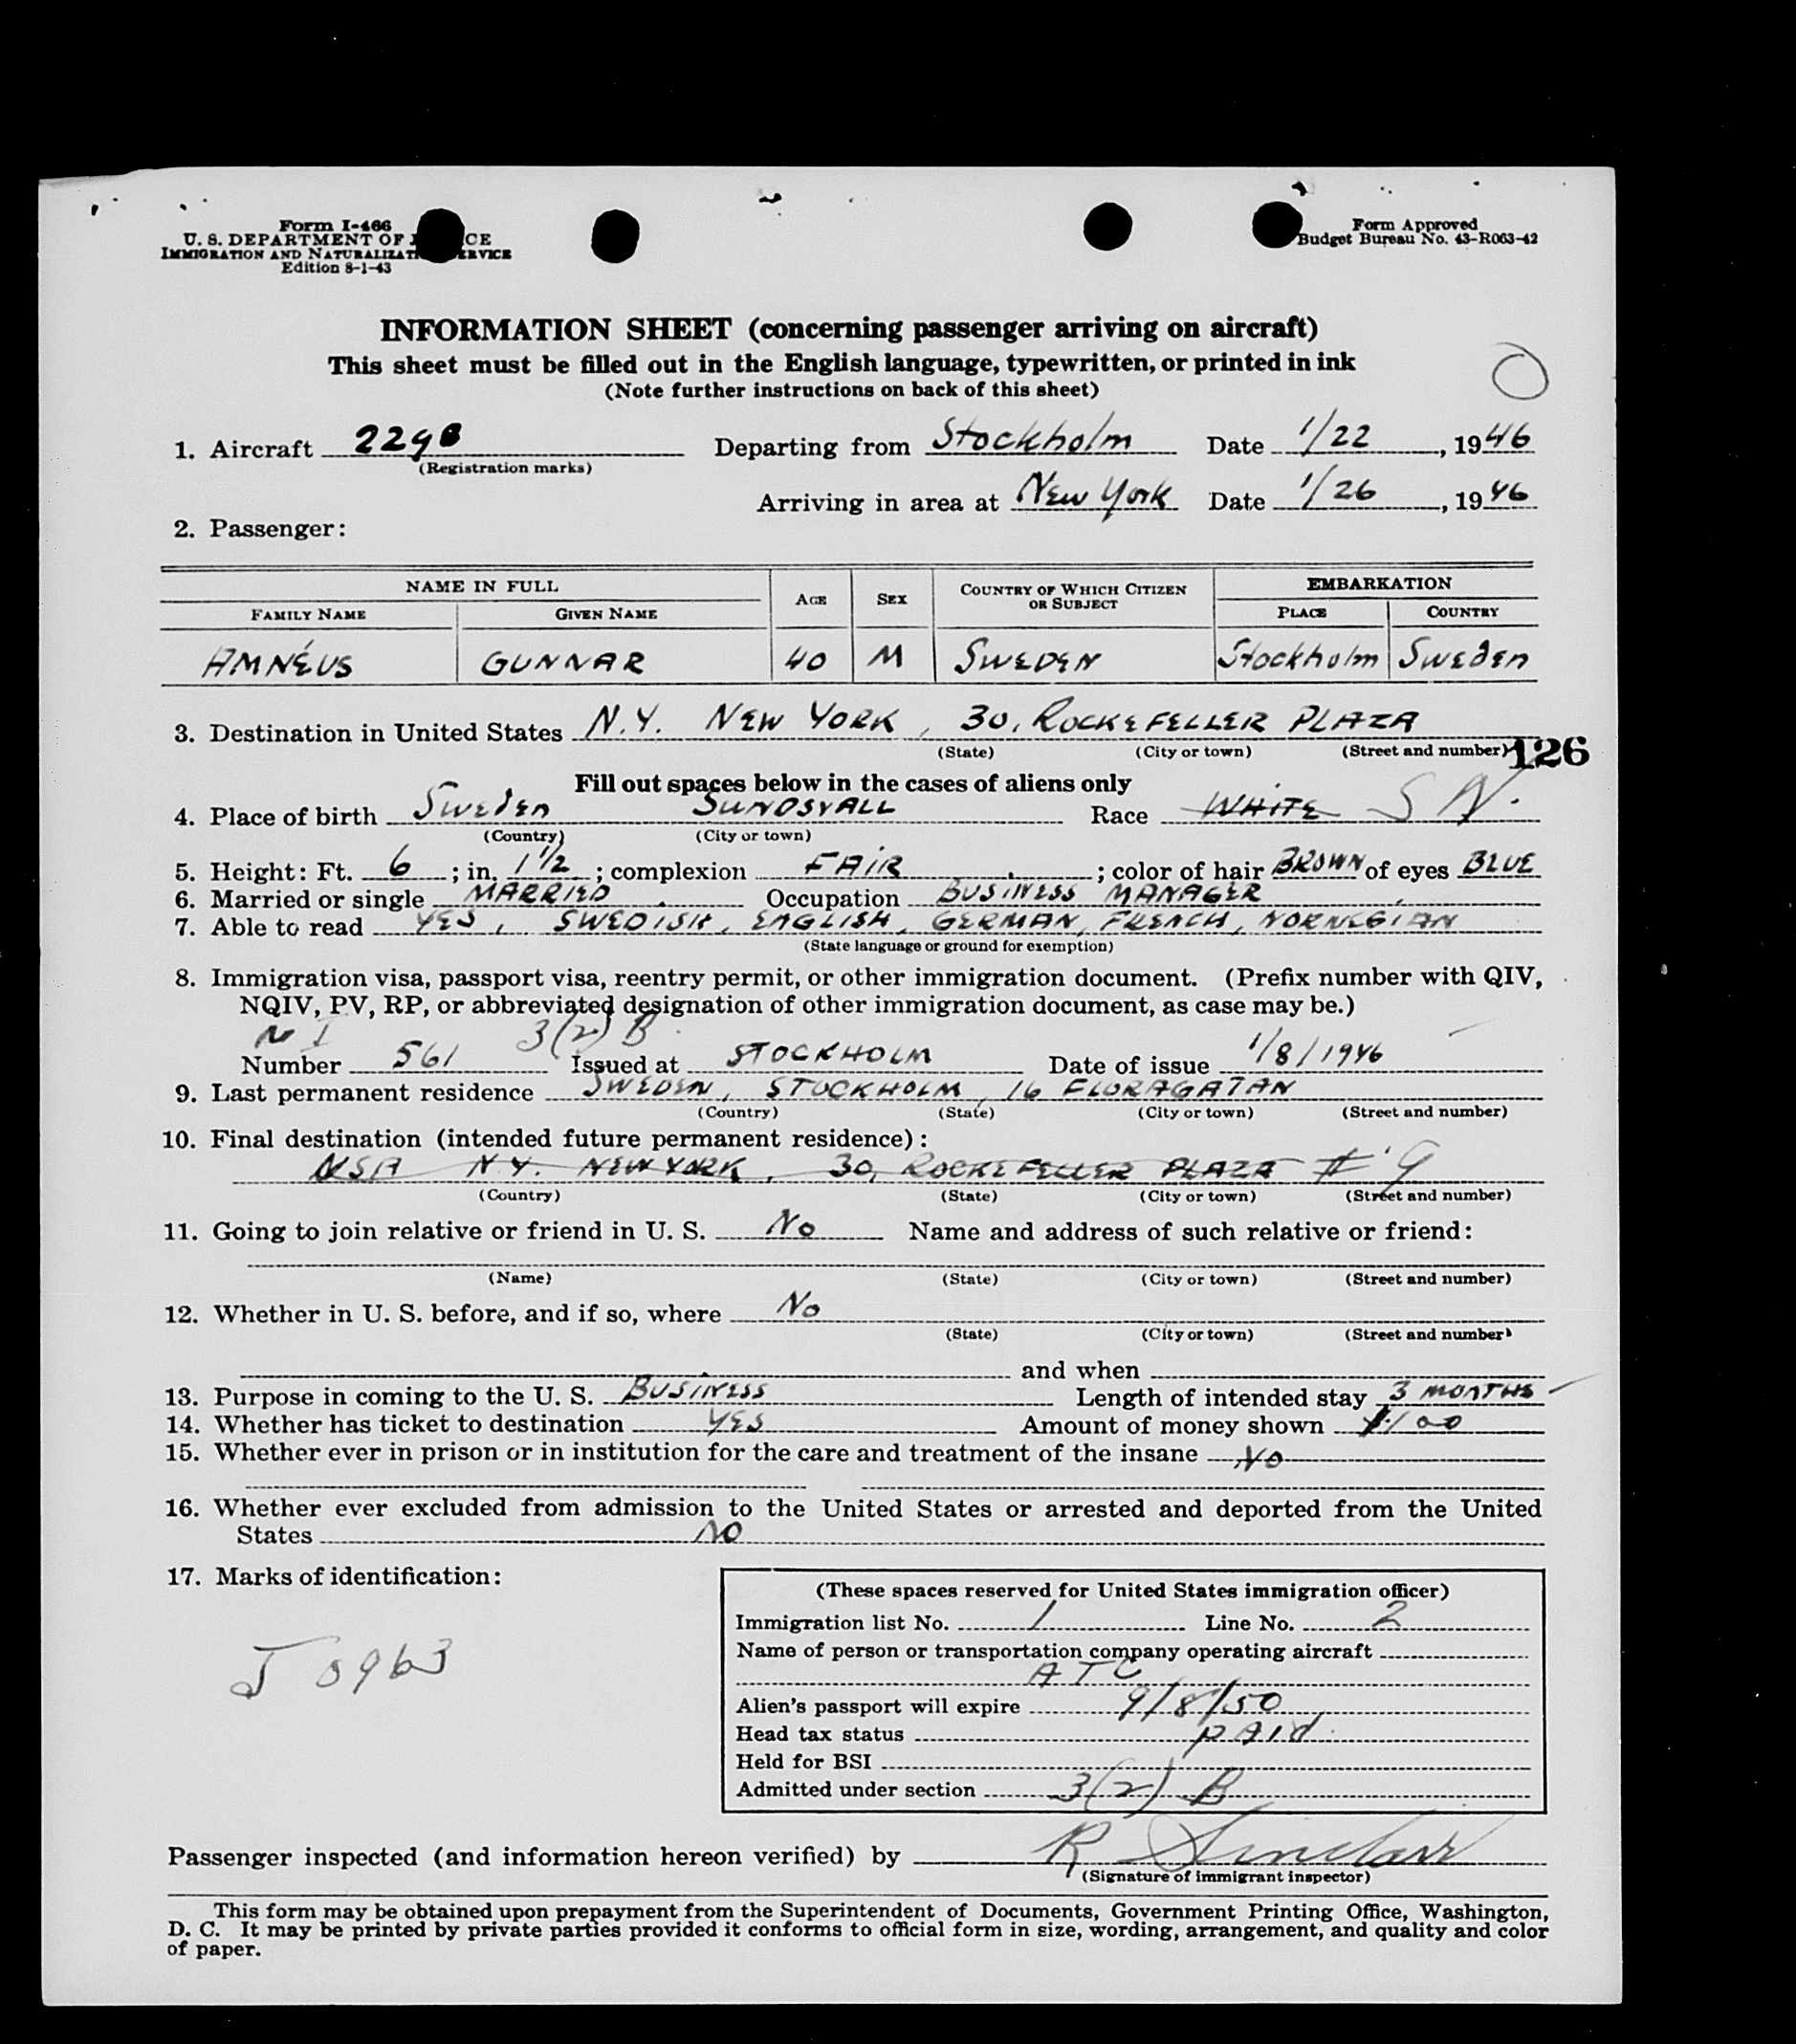 Form I-466
U. S. DEPARTMENT OF J CE
IMMIGRATION AND NATURALIZATI ERVICE
Edition 8-1-43
Form Approved
Budget Bureau No. 43-R063-42
INFORMATION SHEET (concerning passenger arriving on aircraft)
This sheet must be filled out in the English language, typewritten, or printed in ink
(Note further instructions on back of this sheet)
1. Aircraft Departing from Stockholm Date 1/22, 1946
(Registration marks)
Arriving in area at New York Date 1/26, 1946
2. Passenger:
NAME IN FULL AGE SEX COUNTRY OF WHICH CITIZEN OR SUBJECT EMBARKATION
FAMILY NAME GIVEN NAME PLACE COUNTRY
AMNÉUS GUNNAR 40 M SWEDEN Stockholm Sweden
3. Destination in United States N.Y. NEW YORK, 30, ROCKEFELLER PLAZA
(State) (City or town) (Street and number) 126
Fill out spaces below in the cases of aliens only
4. Place of birth Sweden SUNDSVALL Race WHITE S N.
(Country) (City or town)
5. Height: Ft. 6; in. 1 1/2; complexion FAIR; color of hair BROWN of eyes BLUE
6. Married or single MARRIED Occupation BUSINESS MANAGER
7. Able to read YES, SWEDISH, ENGLISH, GERMAN, FRENCH, NORWEGIAN
(State language or ground for exemption)
8. Immigration visa, passport visa, reentry permit, or other immigration document. (Prefix number with QIV,
NQIV, PV, RP, or abbreviated designation of other immigration document, as case may be.)
N I 3(2) B
Number 561 Issued at STOCKHOLM Date of issue 1/8/1946
9. Last permanent residence SWEDEN, STOCKHOLM, 16 FLORAGATAN
(Country) (State) (City or town) (Street and number)
10. Final destination (intended future permanent residence):
USA N.Y. NEW YORK, 30, ROCKEFELLER PLAZA # 9
(Country) (State) (City or town) (Street and number)
11. Going to join relative or friend in U. S. No Name and address of such relative or friend:
(Name) (State) (City or town) (Street and number)
12. Whether in U. S. before, and if so, where No
(State) (City or town) (Street and number)
and when
13. Purpose in coming to the U. S. BUSINESS Length of intended stay 3 MONTHS
14. Whether has ticket to destination YES Amount of money shown $100
15. Whether ever in prison or in institution for the care and treatment of the insane NO
16. Whether ever excluded from admission to the United States or arrested and deported from the United
States NO
17. Marks of identification:
J 0963
(These spaces reserved for United States immigration officer)
Immigration list No. 1 Line No. 2
Name of person or transportation company operating aircraft
ATC
Alien's passport will expire 9/8/50
Head tax status paid
Held for BSI
Admitted under section 3(2) B
Passenger inspected (and information hereon verified) by R Sinclair
(Signature of immigrant inspector)
This form may be obtained upon prepayment from the Superintendent of Documents, Government Printing Office, Washington,
D. C. It may be printed by private parties provided it conforms to official form in size, wording, arrangement, and quality and color
of paper.